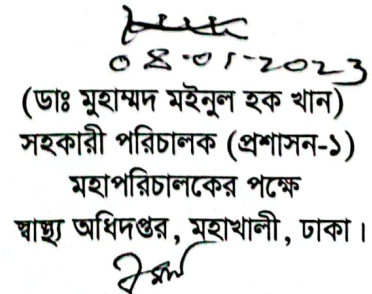 08-01-2023
(ডাঃ মুহাম্মদ মইনুল হক খান)
সহকারী পরিচালক (প্রশাসন-১)
মহাপরিচালকের পক্ষে
স্বাস্থ্য অধিদপ্তর, মহাখালী, ঢাকা।